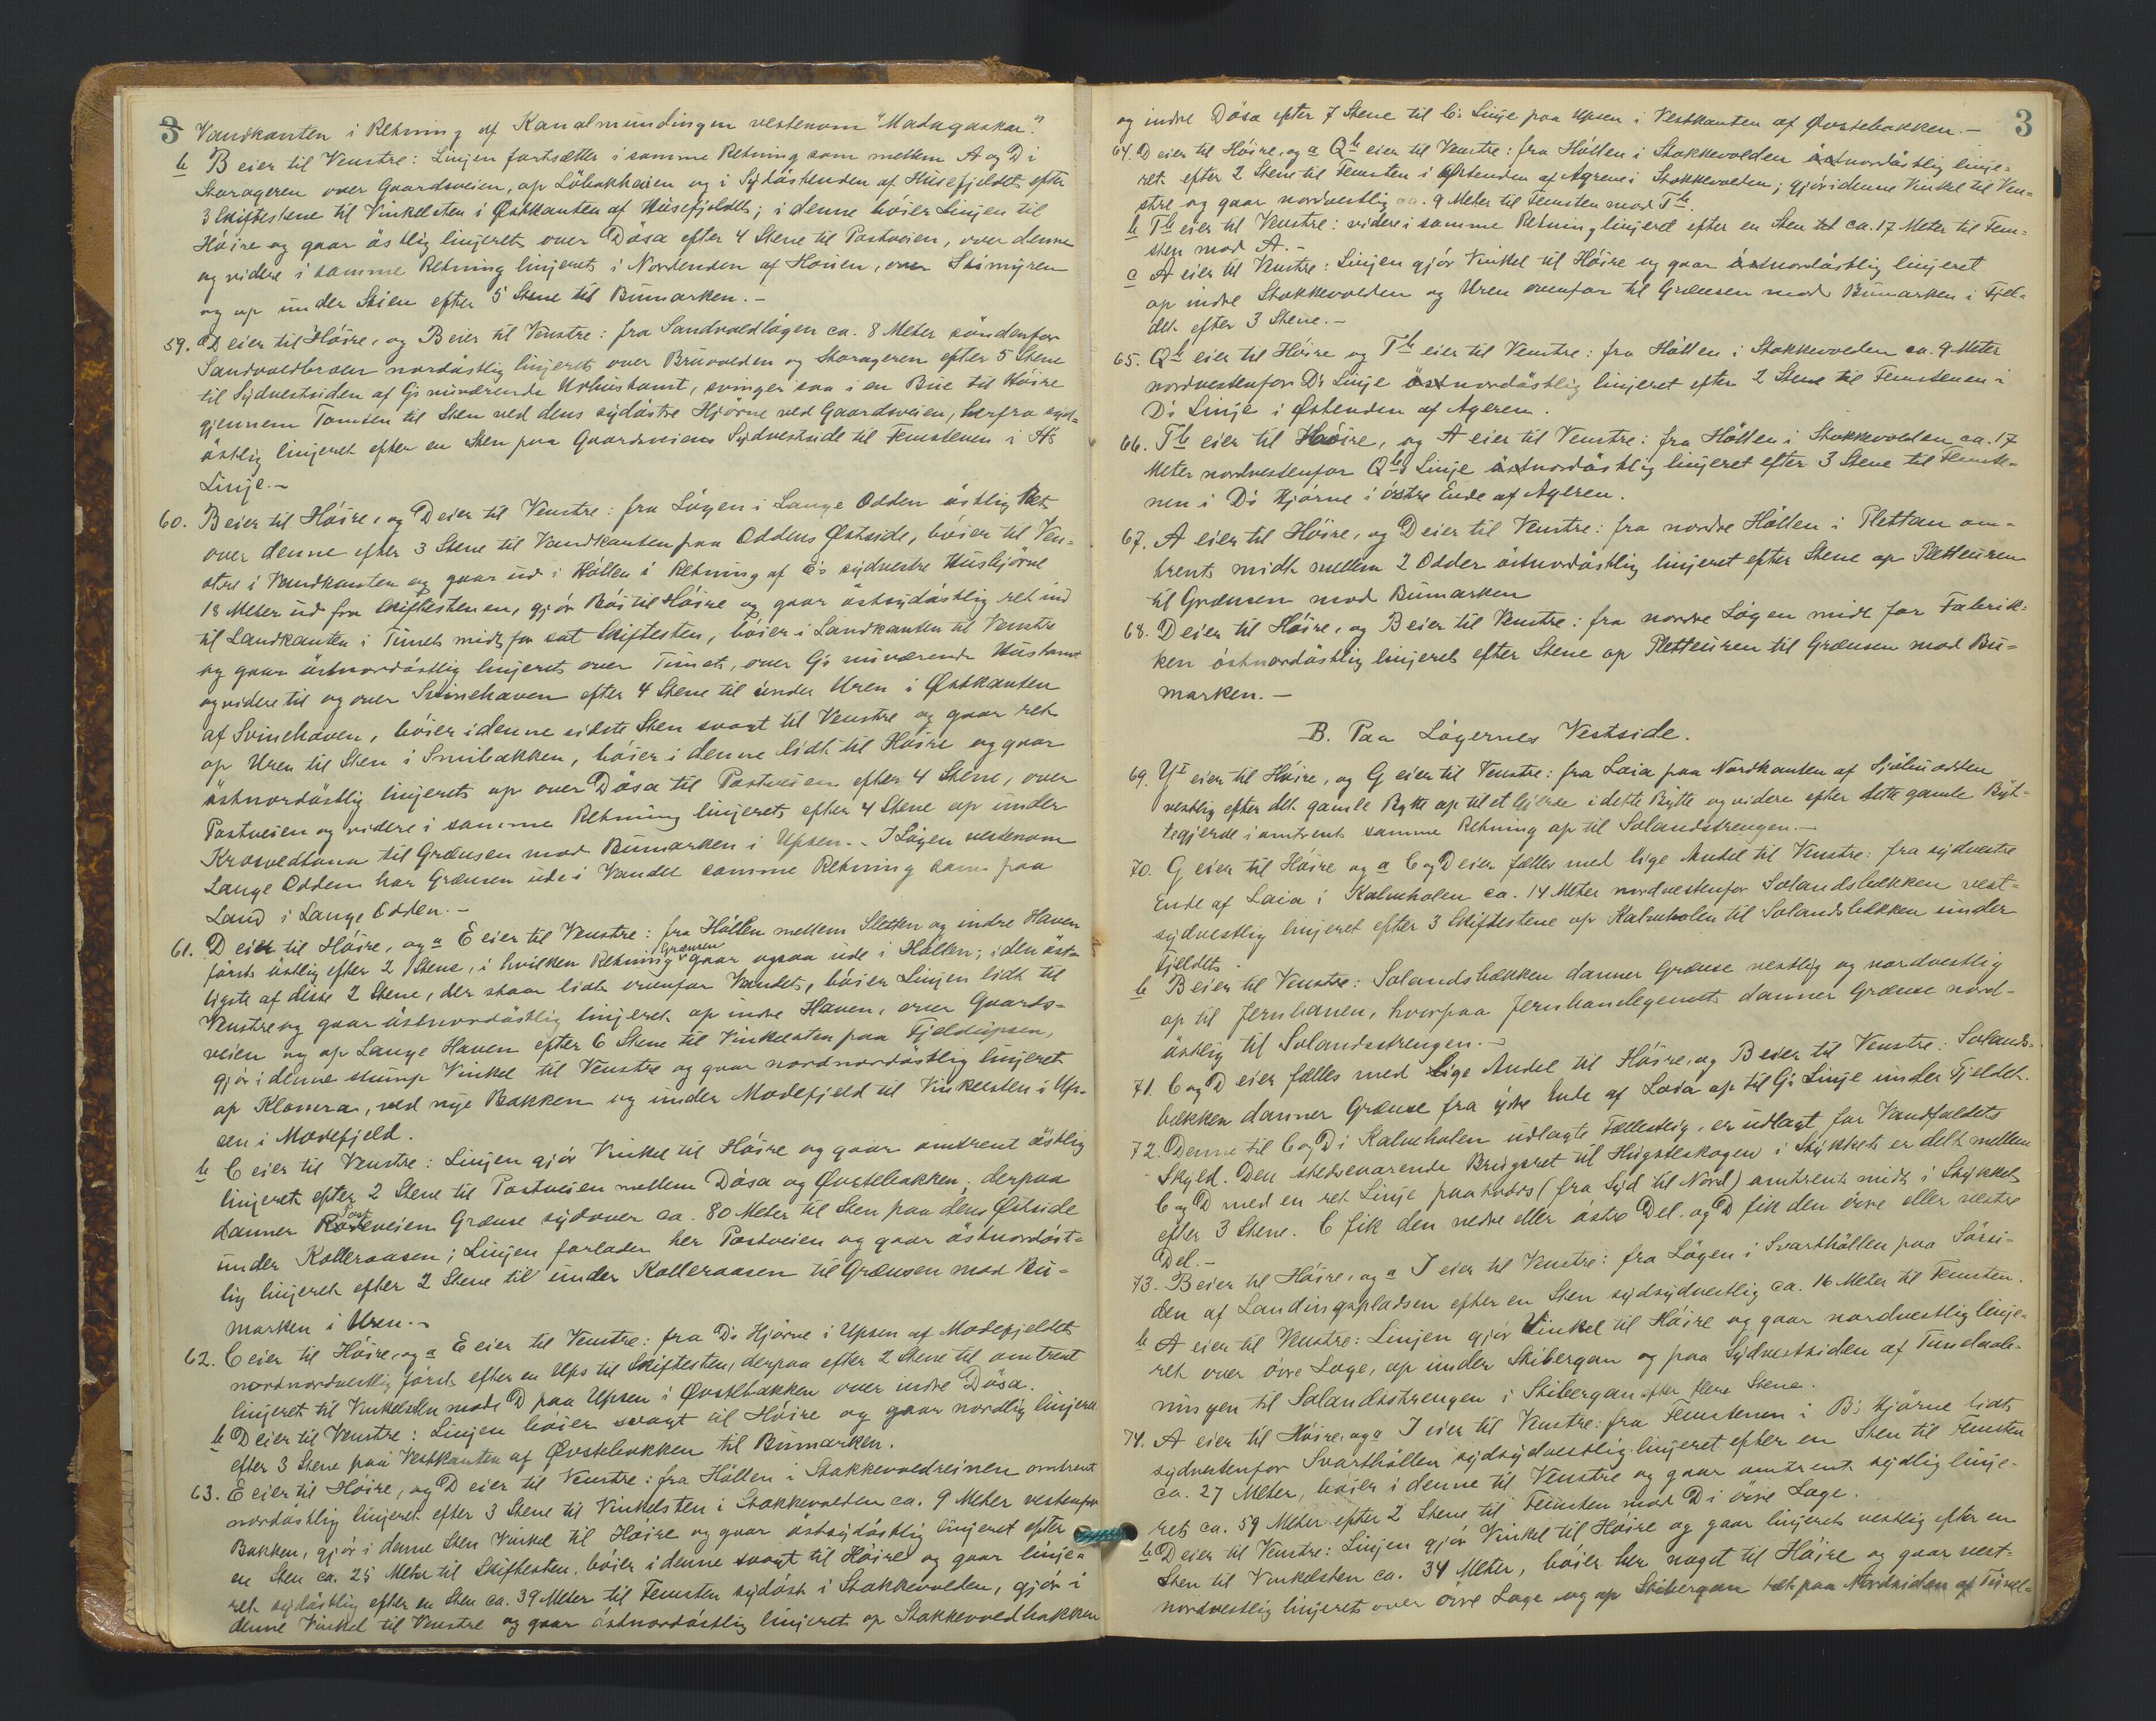 3
Vandkanten i Retning af Kanalmundingen vestenom "Madagaskar".
b B eier til Venstre: Linjen fortsætter i samme Retning som mellem A og D i
Storageren over Gaardsveien, op Löbakhaien og i Sydöstenden af Husefjeldet efter
3 Skiftestene til Vinkelsten i Østkanten af Husefjeldet; i denne böier Linjen til
Höire og gaar östlig linjeret over Dösa efter 4 Stene til Postveien, over denne
og videre i samme Retning linjeret i Nordenden af Houen, over Skimyren
og op under Skien efter 5 Stene til Bumarken.-
59. D eier til Höire, og B eier til Venstre: fra Sandvoldlögen ca. 8 Meter söndenfor
Sandvoldbroen nordöstlig linjeret over Bruvolden og Storageren efter 5 Stene
til Sydvestsiden af G's nuværende Udhustomt, svinger saa i en Bue til Höire
gjennem Tomten til Sten ved dens sydöstre Hjörne ved Gaardsveien, herfra syd-
östlig linjeret efter en Sten paa Gaardsveiens Sydvestside til Femstenen i A's
Linje.-
60. B eier til Höire, og D eier til Venstre: fra Lögen i Lange Odden östlig ret
over denne efter 3 Stene til Vandkanten paa Oddens Østside, böier til Ven-
stre i Vandkanten og gaar ud i Höllen i Retning af E's sydvestre Hushjörne
18 Meter ud fra Skiftestenen, gjör Böi til Höire og gaar östsydöstlig ret ind
til Landkanten i Tunet midt for sat Skiftesten, böier i Landkanten til Venstre
og gaar östnordöstlig linjeret over Tunet, over G's nuværende Hustomt
og videre til og over Svinehaven efter 4 Stene til under Uren i Østkanten
af Svinehaven, böier i denne sidste Sten svagt til Venstre og gaar ret
op Uren til Sten i Smibakken, böier i denne lidt til Höire og gaar
östnordöstlig linjeret op over Dösa til Postveien efter 4 Stene, over
Postveien og videre i samme Retning linjeret efter 4 Stene op under
Krosvedtona til Grænsen mod Bumarken i Upsen.- I Lögen vestenom
Lange Odden har Grænsen ude i Vandet samme Retning som paa
Land i Lange Odden.-
61. D eier til Höire, og a E eier til Venstre: fra Höllen mellem Sletten og indre Haven
först östlig efter 2 Stene, i hvilken Retning Grænsen gaar ogsaa ude i Höllen; i den öst-
ligste af disse 2 Stene, der staar lidt ovenfor Vandet, böier Linjen lidt til
Venstre og gaar östnordöstlig linjeret op indre Haven, over Gaards-
veien og op Lange Haven efter 6 Stene til Vinkelsten paa Fjeldupsen,
gjör i denne stump Vinkel til Venstre og gaar nordnordöstlig linjeret
op Klomra, ved nye Bakken og under Modefjeld til Vinkelsten i Up-
sen i Modefjeld.
b C eier til Venstre: Linjen gjör Vinkel til Höire og gaar omtrent östlig
linjeret efter 2 Stene til Postveien mellem Dösa og Øvstebakken; derpaa
danner Postveien Grænse sydover ca. 80 Meter til Sten paa dens Østside
under Kolleraasen; Linjen forlader her Postveien og gaar östnordöst-
lig linjeret efter 2 Stene til under Kolleraasen til Grænsen mod Bu-
marken i Uren.-
62. C eier til Höire, og a E eier til Venstre: fra D's Hjörne i Upsen af Modefjeldet
nordnordvestlig först efter en Ups til Skiftesten, derpaa efter 2 Stene til omtrent
linjeret til Vinkelsten mod D paa Upsen i Øvstebakken over indre Dösa.
b D eier til Venstre: Linjen böier svagt til Höire og gaar nordlig linjeret
efter 3 Stene paa Vestkanten af Øvstebakken til Bumarken.
63. E eier til Höire, og D eier til Venstre: fra Höllen i Stakkevoldreinen omtrent
nordöstlig linjeret efter 3 Stene til Vinkelsten i Stakkevolden ca. 9 Meter vestenfor
Bakken, gjör i denne Sten Vinkel til Höire og gaar östsydöstlig linjeret efter
en Sten ca. 25 Meter til Skiftesten, böier i denne svagt til Höire og gaar linje-
ret sydöstlig efter en Sten ca. 39 Meter til Femsten sydöst i Stakkevolden, gjör i
denne Vinkel til Venstre og gaar östnordöstlig linjeret op Stakkevoldbakken
3
og indre Dösa efter 7 Stene til C's Linje paa Upsen i Vestkanten af Øvstebakken.-
64. D eier til Höire, og a Qb eier til Venstre: fra Höllen i Stakkevolden östnordöstlig linje-
ret efter 2 Stene til Femsten i Østenden af Ageren i Stakkevolden; gjör i denne Vinkel til Ven-
stre og gaar nordvestlig ca. 9 Meter til Femsten mod Tb.
b Tb eier til Venstre: videre i samme Retning linjeret efter en Sten ca. 17 Meter til Fem-
sten mod A.-
c A eier til Venstre: Linjen gjör Vinkel til Höire og gaar östnordöstlig linjeret
op indre Stakkevolden og Uren ovenfor til Grænsen mod Bumarken i Fjel-
det efter 3 Stene.-
65. Qb eier til Höire og Tb eier til Venstre: fra Höllen i Stakkevolden ca. 9 Meter
nordvestenfor D's Linje östnordöstlig linjeret efter 2 Stene til Femstenen i
D's Linje i Østenden af Ageren.
66. Tb eier til Höire, og A eier til Venstre: fra Höllen i Stakkevolden ca. 17
Meter nordvestenfor Qb's Linje östnordöstlig linjeret efter 3 Stene til Femste-
nen i D's Hjörne i östre Ende af Ageren.
67. A eier til Höire, og D eier til Venstre: fra nordre Höllen i Plettan om-
trent midt mellem 2 Odder östnordöstlig linjeret efter Stene op Pletteuren
til Grænsen mod Bumarken
68. D eier til Höire, og B eier til Venstre: fra nordre Lögen midt for Fabrik-
ken östnordöstlig linjeret efter Stene op Pletteuren til Grænsen mod Bu-
marken.-
B. Paa Lögernes Vestside.
69. YI eier til Höire, og G eier til Venstre: fra Laia paa Nordkanten af Hjölmodden
vestlig efter det gamle Bytte op til et Gjerde i dette Bytte og videre efter dette gamle Byt-
tegjerde i omtrent samme Retning op til Solandstrengen.-
70. G eier til Höire og a C og D eier fælles med lige Andel til Venstre: fra sydvestre
Ende af Laia i Kalveholen ca. 14 Meter nordvestenfor Solandsbækken vest-
sydvestlig linjeret efter 3 Skiftestene op Kalveholen til Solandsbækken under
Fjeldet.
b B eier til Venstre: Solandsbækken danner Grænse vestlig og nordvestlig
op til Jernbanen, hvorpaa Jernbanelegemet danner Grænse nord-
östlig til Solandsstrengen.-
71. C og D eier fælles med lige Andel til Höire, og B eier til Venstre: Solands-
bækken danner Grænse fra ydre Ende af Laia op til G's Linje under Fjeldet.
72. Denne til C og D i Kalveholen udlagte Fællesteig, er udlagt for Vandfaldets
Skyld. Den stedsevarende Brugsret til Hugsteskogen i Stykket er delt mellem
C og D med en ret Linje paatværs (fra Syd til Nord) omtrent midt i Stykket
efter 3 Stene. C fik den nedre eller östre Del, og D fik den övre eller vestre
Del.-
73. B eier til Höire, og a I eier til Venstre: fra Lögen i Svarthöllen paa Sörsi-
den af Landingspladsen efter en Sten sydsydvestlig ca. 16 Meter til Femsten.
b A eier til Venstre: Linjen gjör Vinkel til Höire og gaar nordvestlig linje-
ret over övre Loge, op under Skibergan og paa Sydvestsiden af Tunelaab-
ningen til Solandsstrengen i Skibergan efter flere Stene.
74. A eier til Höire, og a I eier til Venstre: fra Femstenen i B's Hjörne lidt
sydvestenfor Svarthöllen sydsydvestlig linjeret efter en Sten til Femsten
ca. 27 Meter, böier i denne til Venstre og gaar omtrent sydlig linje-
ret ca. 59 Meter efter 2 Stene til Femsten mod D i övre Loge.
b D eier til Venstre: Linjen gjör Vinkel til Höire og gaar linjeret vestlig efter en
Sten til Vinkelsten ca. 34 Meter, böier her noget til Höire og gaar vest-
nordvestlig linjeret over övre Loge og op Skibergan tæt paa Nordsiden af Tunel-